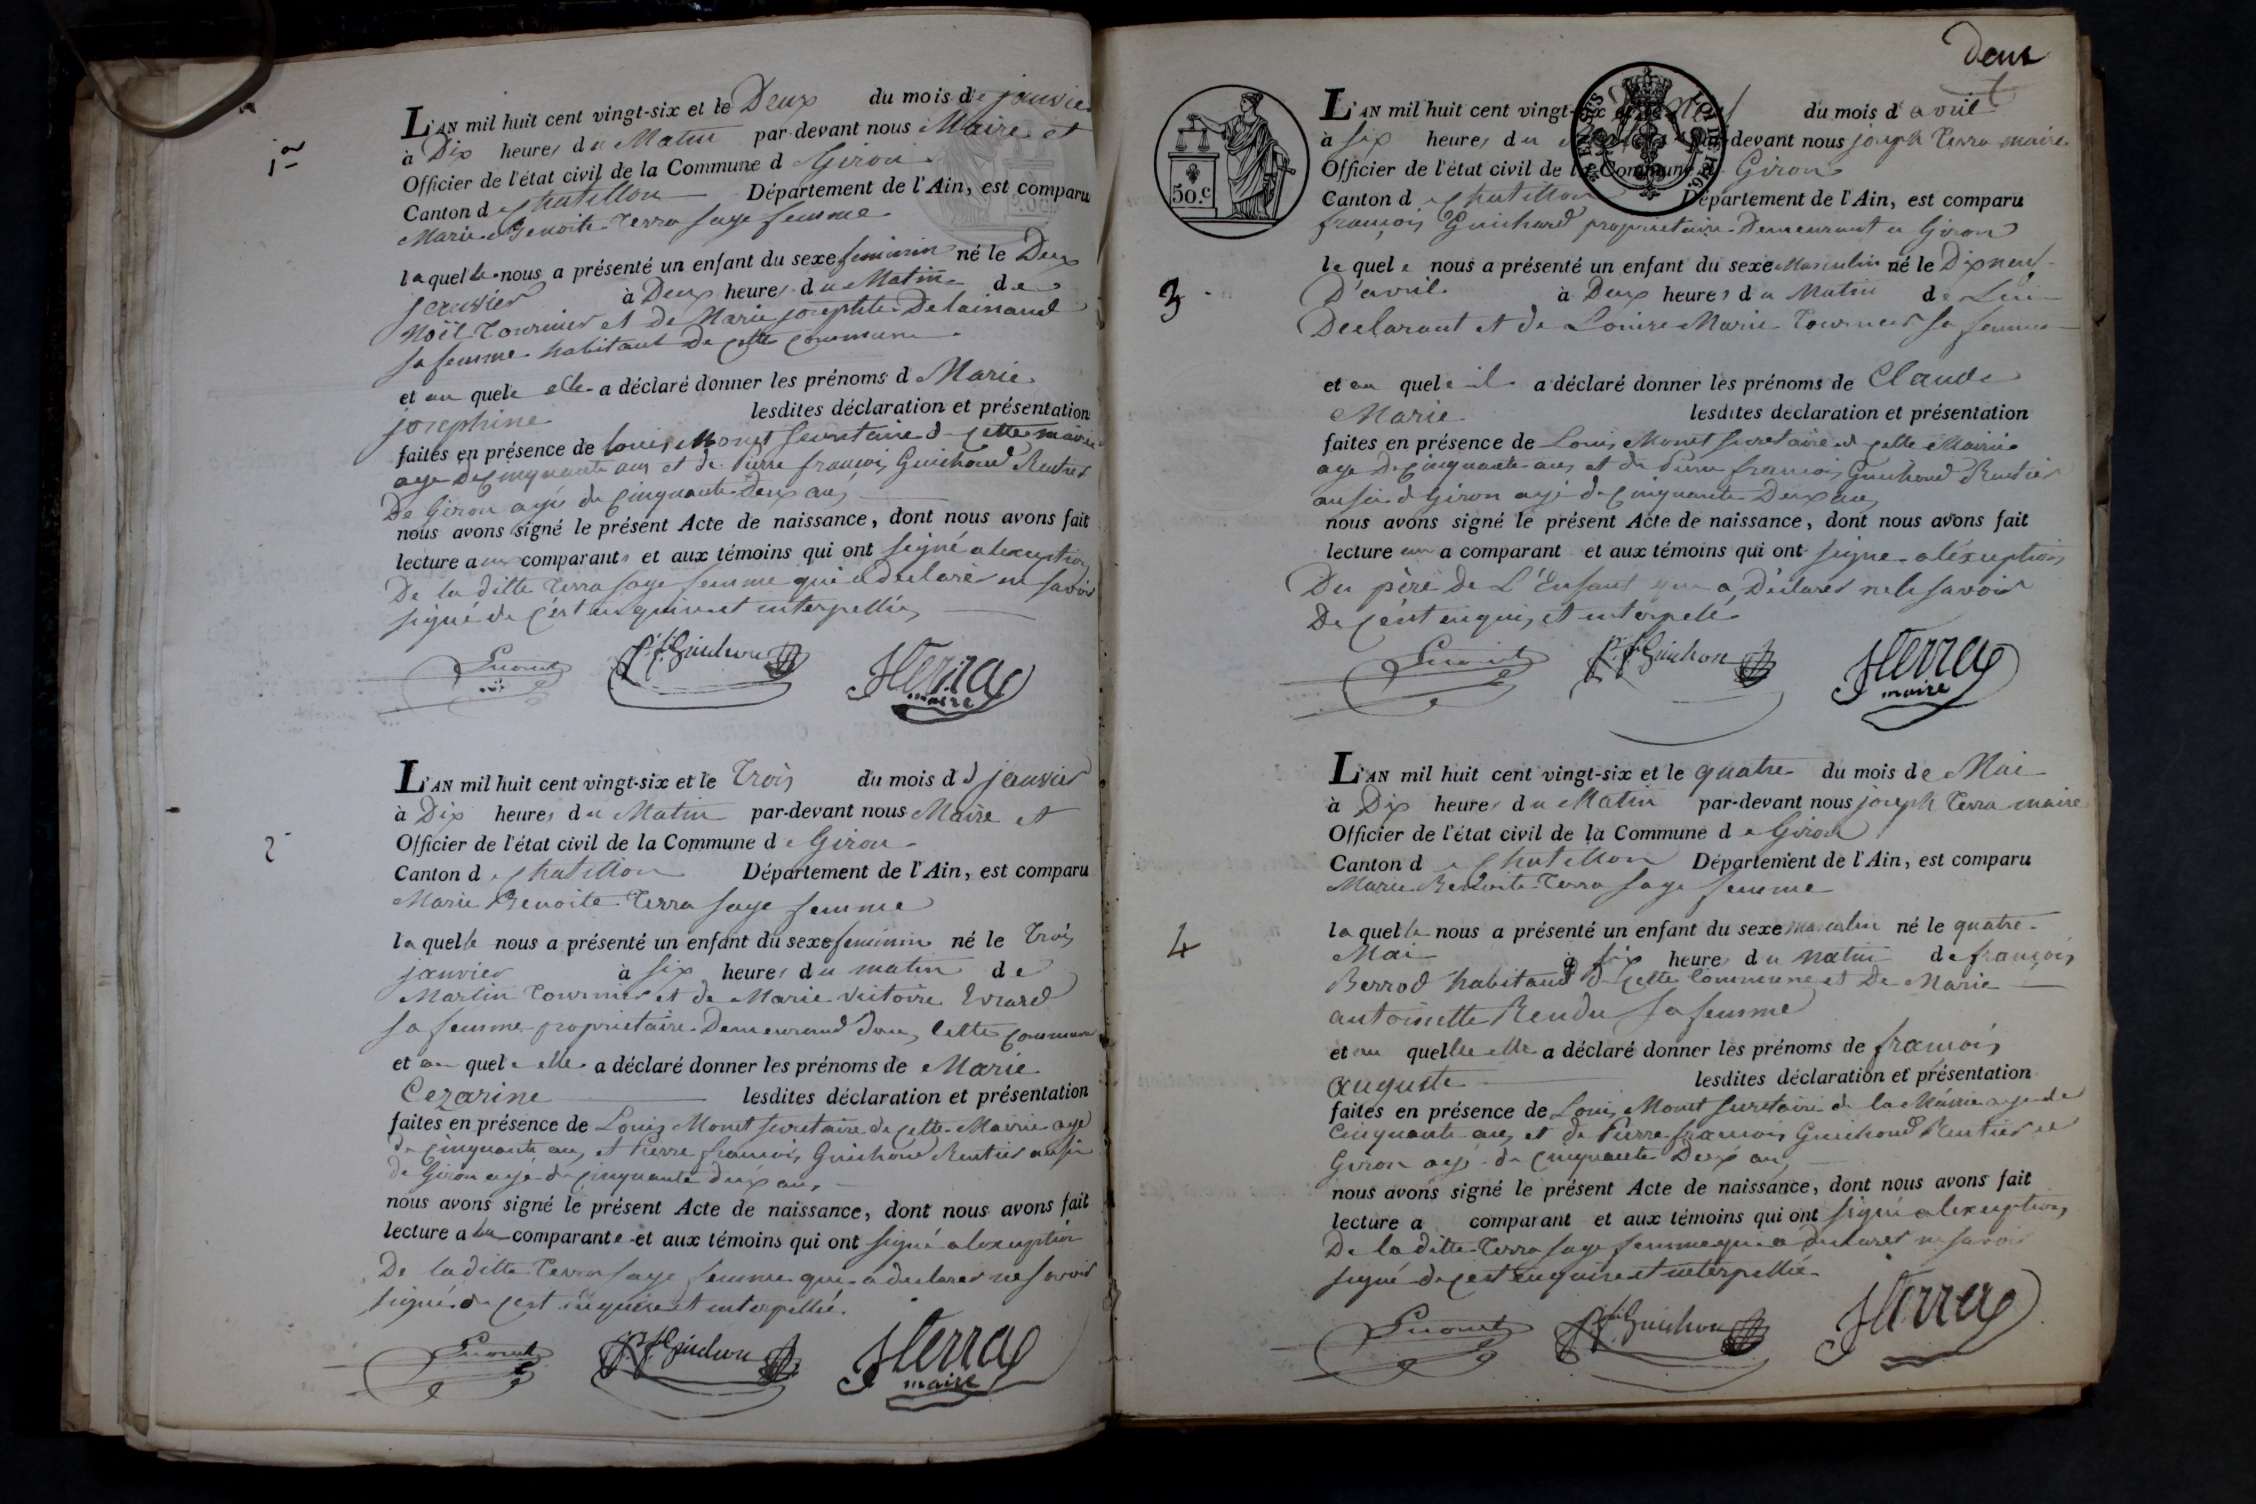 1er
L'AN mil huit cent vingt-six et le Deux du mois de janvier
à Dix heures du Matin par-devant nous Maire et
Officier de l'état civil de la Commune de Giron
Canton de Chatillon Département de l'Ain, est comparu
Marie Benoite Terra sage femme
laquelle nous a présenté un enfant du sexe feminin né le Deux
janvier à Deux heures du Matin de
Noël Tournier et de Marie josephte Delainaud
sa femme habitant De cette commune
et au quele elle a déclaré donner les prénoms d Marie
josephine lesdites déclaration et présentation
faites en présence de Louis Monet secretaire d cette mairie
age De cinquante ans et de Pierre françois Guichond Rentier
De Giron agé de cinquante Deux ans
nous avons signé le présent Acte de naissance, dont nous avons fait
lecture aux comparants et aux témoins qui ont signé a lexception
De la ditte Terra sage femme qui a declarer ne savoir
signé de c'est enquire et interpellée
P f Guichon
JTerra
maire
2
L'AN mil huit cent vingt-six et le Trois du mois d janvier
à Dix heures du Matin par-devant nous Maire et
Officier de l'état civil de la Commune de Giron
Canton de Chatillon Département de l'Ain, est comparu
Marie Benoite Terra sage femme
laquelle nous a présenté un enfant du sexe feminin né le Trois
janvier à six heures du matin de
Martin Tournier et de Marie victoire Evrard
sa femme proprietaire Demeurand dans cette commune
et au quele elle a déclaré donner les prénoms de Marie
Cezarine lesdites déclaration et présentation
faites en présence de Louis Monet secretaire de cette Mairie agé
de cinquante ans et Pierre francois Guichond Rentier aussi
de Giron agé de cinquante deux ans
nous avons signé le présent Acte de naissance, dont nous avons fait
lecture a la comparante et aux témoins qui ont signé a lexception
De la ditte Terra sage femme qui a declarer ne savoir
signé de cest enquire et interpellé
P f Guichon
JTerra
maire
Deux
50.c
LOI DE 1816
L'AN mil huit cent vingt-six du mois d avril
à six heures du par-devant nous joseph Terra maire
Officier de l'état civil de la Commune de Giron
Canton de Chatillon Département de l'Ain, est comparu
françois Guichard proprietaire Demeurant a Giron
3
le quel e nous a présenté un enfant du sexe Masculin né le Dixneuf
D'avril à Deux heures du Matin de Lui
Declarant et de Louise Marie Tournier sa femme
et au quel e il a déclaré donner les prénoms de Claude
Marie lesdites déclaration et présentation
faites en présence de Louis Monet secretaire de cette Mairie
age De cinquante ans et de Pierre francois Guichond Rentier
aussi d Giron agé de cinquante Deux ans
nous avons signé le présent Acte de naissance, dont nous avons fait
lecture au a comparant et aux témoins qui ont signe a léxception
Du père de L'Enfant qui a Déclarer ne le savoir
De c'est enquis et interpelé
P f Guichon
JTerra
maire
L'AN mil huit cent vingt-six et le quatre du mois de Mai
à Dix heures du Matin par-devant nous joseph Terra maire
Officier de l'état civil de la Commune de Giron
Canton de Chatillon Département de l'Ain, est comparu
Marie Benoite Terra sage femme
4
laquelle nous a présenté un enfant du sexe masculin né le quatre
Mai à six heures du matin de françois
Berrod habitand d cette Commune et De Marie
antoinette Rendu sa femme
et au quelle elle a déclaré donner les prénoms de françois
auguste lesdites déclaration et présentation
faites en présence de Louis Monet secretaire de la Mairie age de
Cinquante ans et de Pierre francois Guichond Rentier de
Giron agé de cinquante Deux ans
nous avons signé le présent Acte de naissance, dont nous avons fait
lecture a comparant et aux témoins qui ont signé a lexception
De la ditte Terra sage femme qui a declarer ne savoir
signé de cest enquire et interpellée
P f Guichon
JTerra